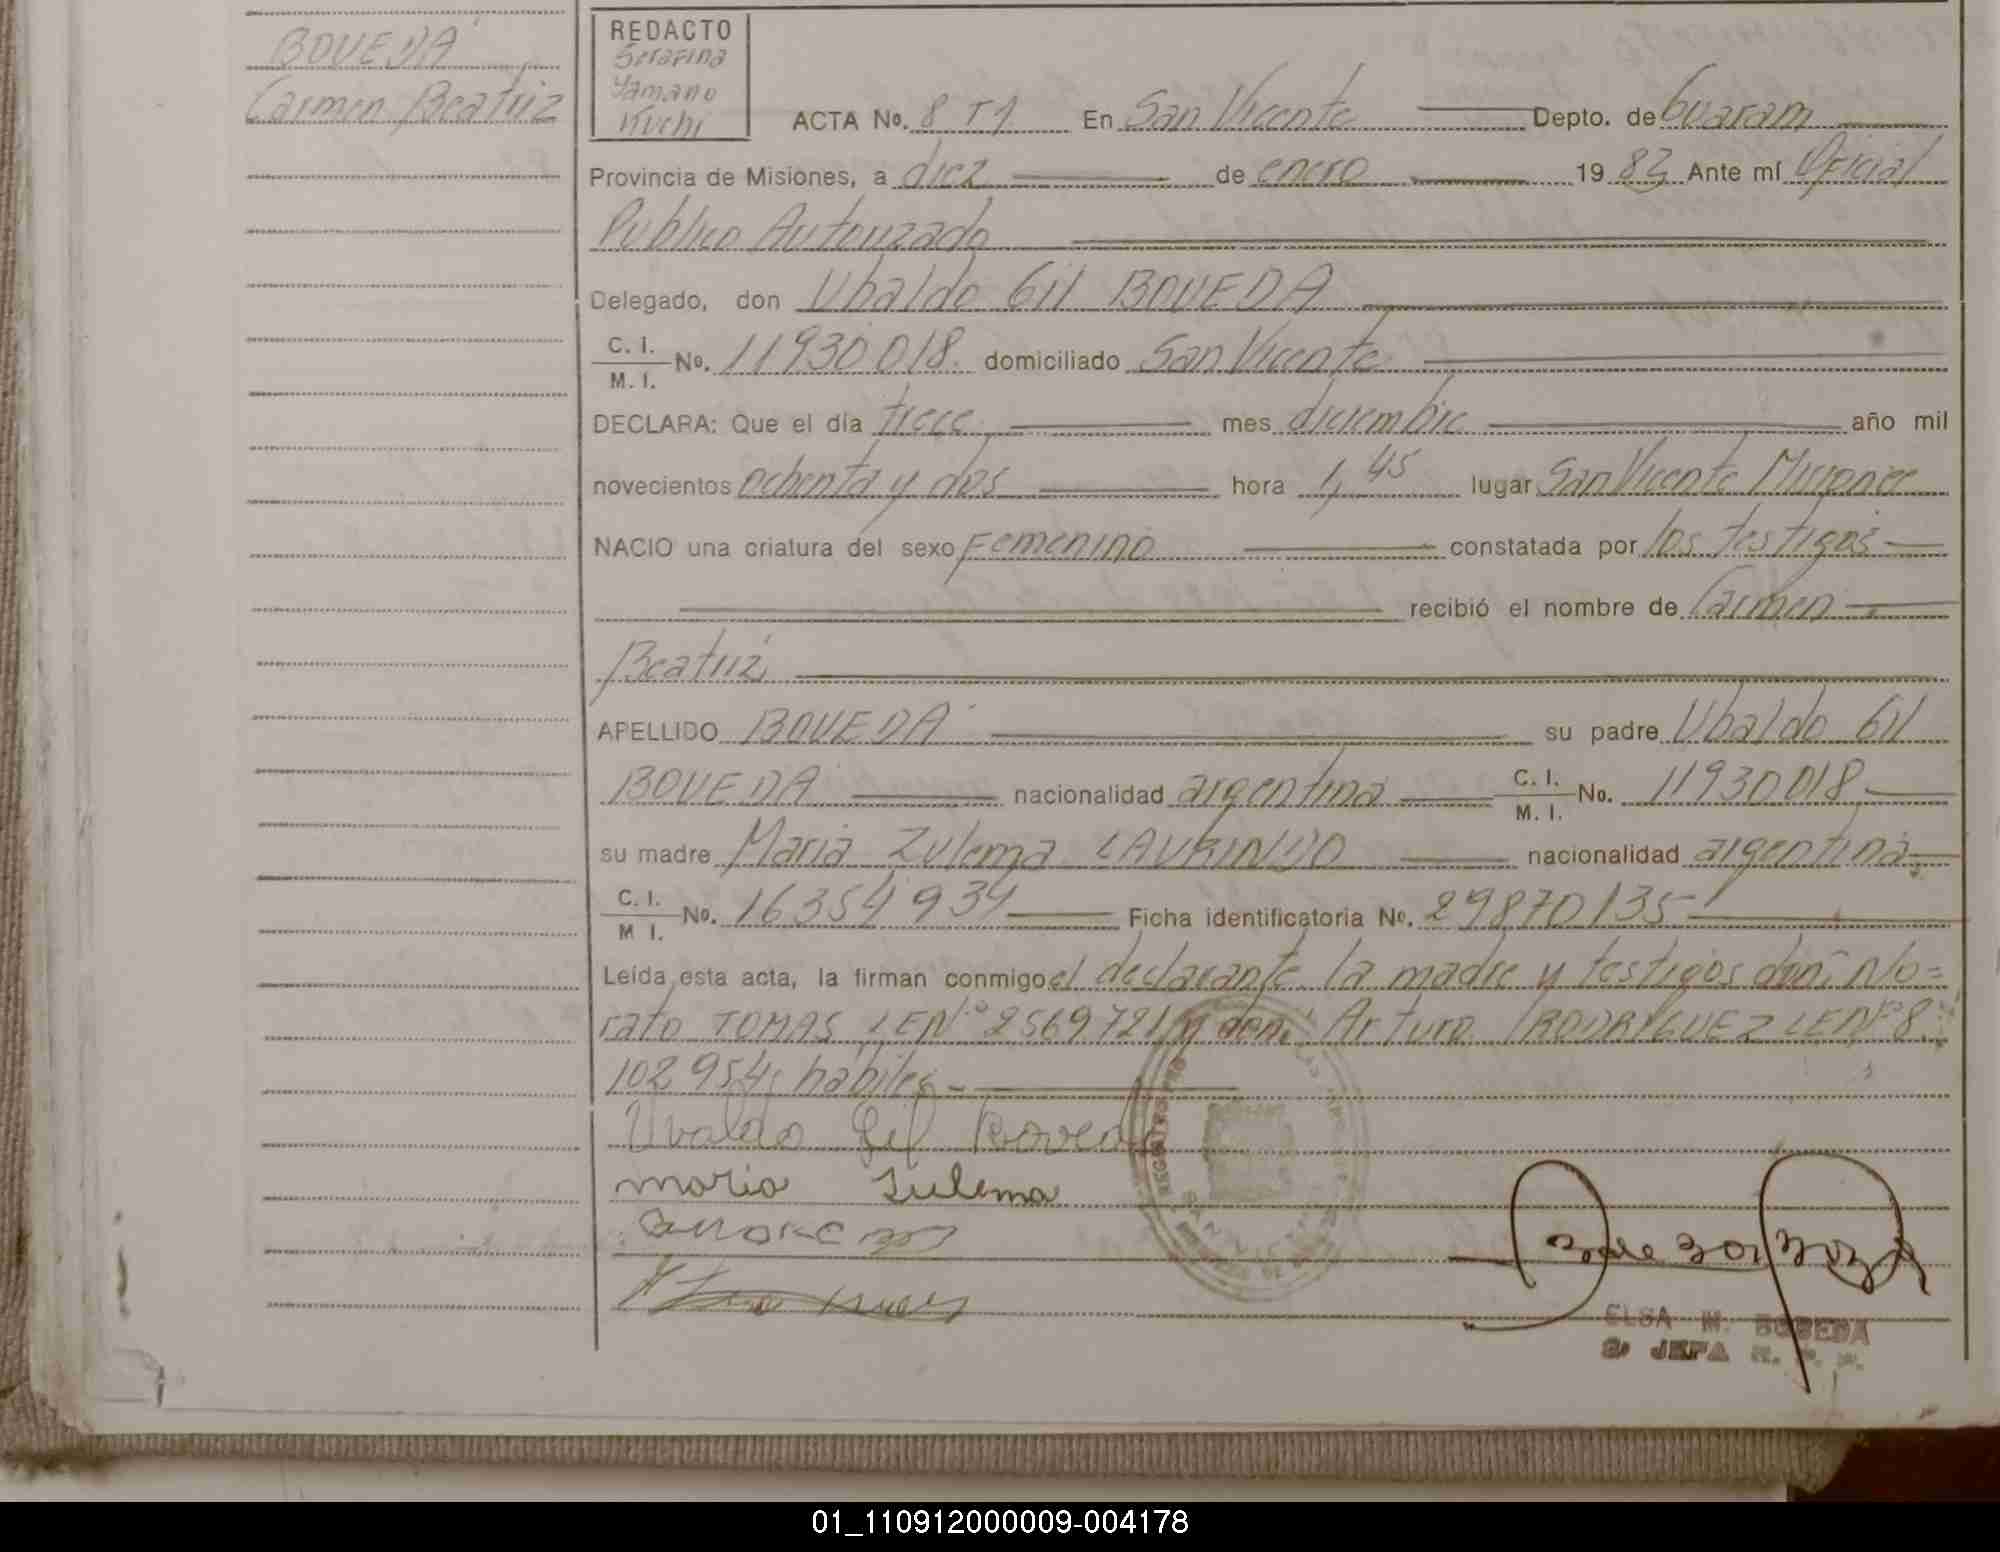 BOVEDA
Carmen Beatriz
REDACTO
Serafina
Yamano
Kuchi
ACTA No. 8 T1 En San Vicente Depto. de Guaram
Provincia de Misiones, a diez de enero 1983 Ante mí Oficial
Publico Autorizado
Delegado, don Ubaldo Gil BOVEDA
C. I. / M. I. No. 11930018. domiciliado San Vicente
DECLARA: Que el día trece mes diciembre año mil
novecientos ochenta y dos hora 1,45 lugar San Vicente Misiones
NACIO una criatura del sexo Femenino constatada por los testigos
recibió el nombre de Carmen
Beatriz
APELLIDO BOVEDA su padre Ubaldo Gil
BOVEDA nacionalidad argentina C. I. / M. I. No. 11930018
su madre Maria Zulema LAURINDO nacionalidad argentina
C. I. / M I. No. 16354934 Ficha identificatoria No. 29870135
Leída esta acta, la firman conmigo el declarante, la madre y testigos don: Mo=
rato TOMAS, LEN° 2569721 y don: Arturo RODRIGUEZ LEN° 8.
102954; habiles
Uvaldo Gil Boveda
maria Zulema
ELSA M. BOBEDA
JEFA
01_110912000009-004178